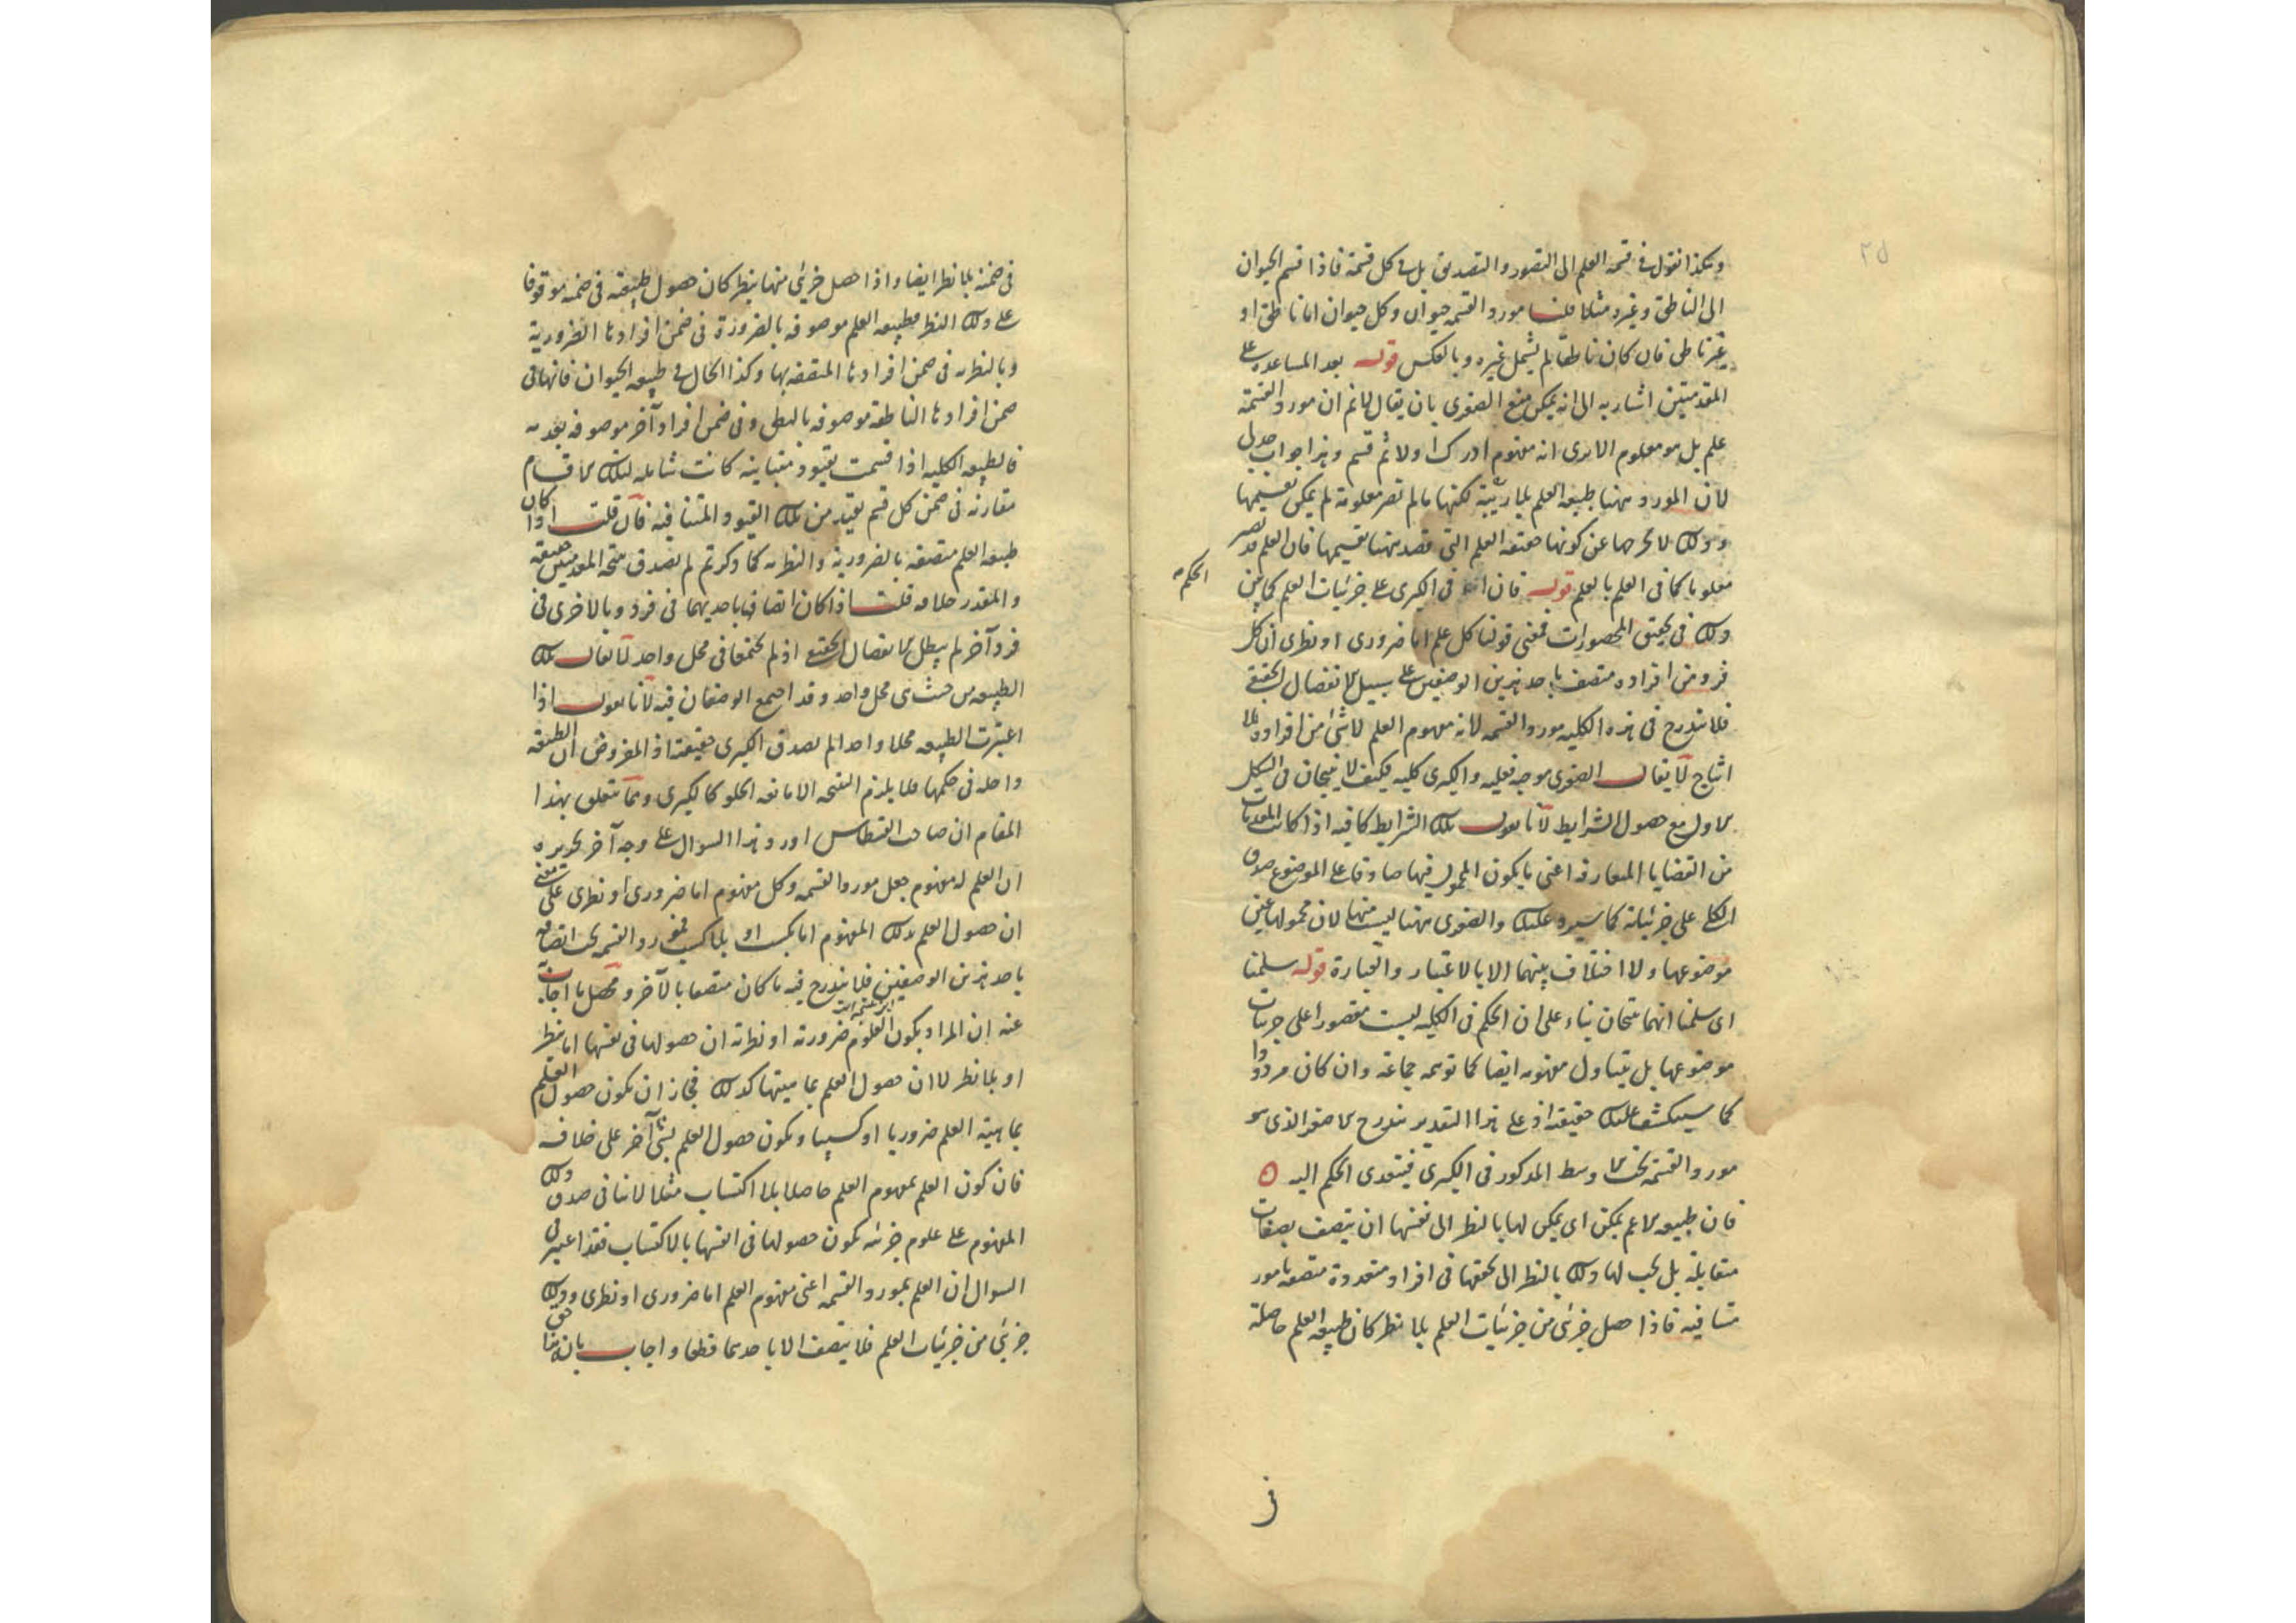 ٢٥
وهكذا نقول في قسمة العلم الى التصور والتصديق بل في كل قسمة فاذا قسم الحيوان
الى الناطق وغيره مثلا قلنا مورد القسمة حيوان وكل حيوان اما ناطق او
غير ناطق فان كان ناطقا لم يشمل غيره وبالعكس قوله بعد المساعدة على
المقدمتين اشار به الى انه يمكن منع الصغرى بان يقال لانم ان مورد القسمة
علم بل هو معلوم الا يرى انه مفهوم ادرك اولا ثم قسم وهذا جواب جدلى
لان المورد ههنا طبيعة العلم بلا ريبة لكنها ما لم تصر معلومة لم يمكن تقسيمها
وذلك لا يخرجها عن كونها حقيقة العلم التى قصد ههنا تقسيمها فان العلم قد يصير
معلوما كما فى العلم بالعلم قوله فان الحكم فى الكبرى على جزئيات العلم كما بين
ذلك فى تحقيق المحصورات فمعنى قولنا كل علم اما ضرورى او نظرى ان كل
فرد من افراده متصف باحد هذين الوصفين على سبيل الانفصال الحقيقى
فلا يندرج فى هذه الكلية مورد القسمة لانه مفهوم العلم لا شئ من افراده فلا
انتاج لا يقال الصغرى موجبة فعلية والكبرى كلية فكيف لا ينتجان فى الشكل
الاول مع حصول الشرايط لانا نقول تلك الشرايط كافية اذا كانت المقدمات
من القضايا المتعارفة اعنى ما يكون المحمول فيها صادقا على الموضوع صدق
الكلى على جزئياته كما سيرد عليك والصغرى ههنا ليست منها لان محمولها عين
موضوعها ولا اختلاف بينهما الا بالاعتبار والعبارة قوله سلمنا
اى سلمنا انهما ينتجان بناء على ان الحكم فى الكلية ليست مقصورا على جزئيات
موضوعها بل يتناول مفهومه ايضا كما توهمه جماعة وان كان مردودا
كما سينكشف عليك حقيقة اذ على هذا التقدير يندرج الاصغر الذى هو
مورد القسمة تحت الاوسط المذكور فى الكبرى فيتعدى الحكم اليه
فان طبيعة الاعم يمكن اى يمكن لها بالنظر الى نفسها ان يتصف بصفات
متقابلة بل يجب لها ذلك بالنظر الى تحققها فى افراد متعددة متصفة بامور
متنافية فاذا حصل جزئى من جزئيات العلم بلا نظر كان طبيعة العلم حاصلة
الحكم
فى
فى ضمنه بلا نظر ايضا واذا حصل جزئى منها بنظر كان حصول طبيعته فى ضمنه موقوفا
على ذلك النظر فطبيعة العلم موصوفة بالضرورة فى ضمن افرادها الضرورية
وبالنظرية فى ضمن افرادها المتصفة بها وكذا الحال فى طبيعة الحيوان فانها فى
ضمن افرادها الناطقة موصوفة بالنطق وفى ضمن افراد آخر موصوفة بعدمه
فالطبيعة الكلية اذا قسمت بقيود متباينة كانت شاملة لتلك الاقسام
مقارنة فى ضمن كل قسم بقيد من تلك القيود المتنافية فان قلت اذا كان
طبيعة العلم متصفة بالضرورية والنظرية كما ذكرتم لم يصدق نتيجة المقدمتين حقيقة
والمقدر خلافه قلت اذا كان اتصافها باحديهما فى فرد وبالاخرى فى
فرد آخر لم يبطل الانفصال الحقيقى اذ لم يجتمعا فى محل واحد لا يقال تلك
الطبيعة من حيث هى محل واحد وقد اجتمع الوصفان فيه لانا نقول اذا
اعتبرت الطبيعة محلا واحدا لم يصدق الكبرى حقيقة اذ المفروض ان الطبيعة
داخلة فى حكمها فلا يلزم النتيجة الا مانعة الخلو كالكبرى ومما يتعلق بهذا
المقام ان صاحب القسطاس اورد هذا السوال على وجه آخر تحريره
ان العلم له مفهوم جعل مورد القسمة وكل مفهوم اما ضرورى او نظرى على معنى
ان حصول العلم بذلك المفهوم اما بكسب او بلا كسب فمورد القسمة يجب اتصافه
باحد هذين الوصفين فلا يندرج فيه ما كان متصفا بالآخر ومحصل ما اجاب
عنه ان المراد بكون العلوم ضرورية او نظرية ان حصولها فى نفسها اما بنظر
او بلا نظر لا ان حصول العلم بماهيتها كذلك فجاز ان يكون حصول العلم
بماهية العلم ضروريا او كسبيا ويكون حصول العلم بشئ آخر على خلافه
فان كون العلم بمفهوم العلم حاصلا بلا اكتساب مثلا لا ينافى صدق ذلك
المفهوم على علوم جزئية يكون حصولها فى انفسها بالاكتساب فقد اعتبر فى
السوال ان العلم بمورد القسمة اعنى مفهوم العلم اما ضرورى او نظرى وذلك
جزئى من جزئيات العلم فلا يتصف الا باحدهما قطعا واجاب بان